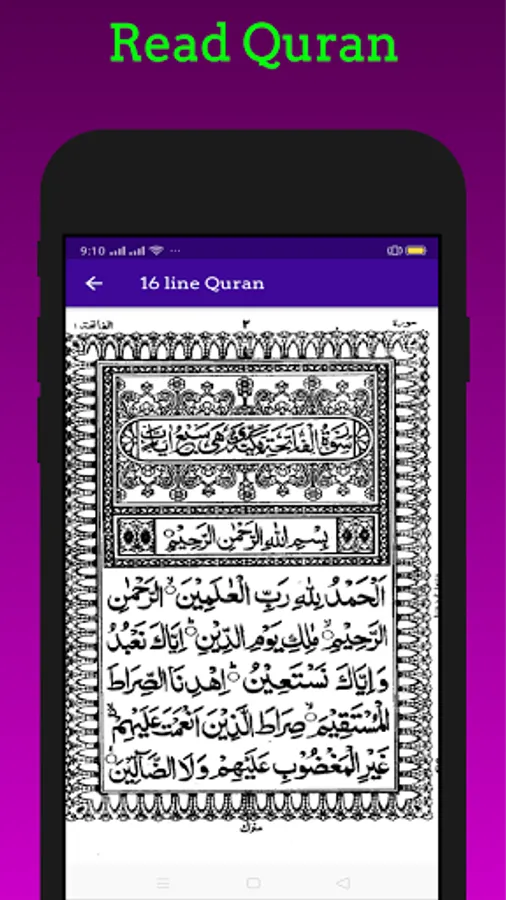 Read Quran
9:10
16 line Quran
سورة ٢ الفاتحة ١
سُوْرَةُ الْفَاتِحَةِ مَكِّيَّةٌ وَّهِيَ سَبْعُ اٰيَاتٍ
بِسْمِ اللّٰهِ الرَّحْمٰنِ الرَّحِيْمِ
اَلْحَمْدُ لِلّٰهِ رَبِّ الْعٰلَمِيْنَ ۙ الرَّحْمٰنِ
الرَّحِيْمِ ۙ مٰلِكِ يَوْمِ الدِّيْنِ ؕ اِيَّاكَ نَعْبُدُ
وَاِيَّاكَ نَسْتَعِيْنُ ؕ اِهْدِنَا الصِّرَاطَ
الْمُسْتَقِيْمَ ۙ صِرَاطَ الَّذِيْنَ اَنْعَمْتَ عَلَيْهِمْ ۙ
غَيْرِ الْمَغْضُوْبِ عَلَيْهِمْ وَلَا الضَّآلِّيْنَ
منزل